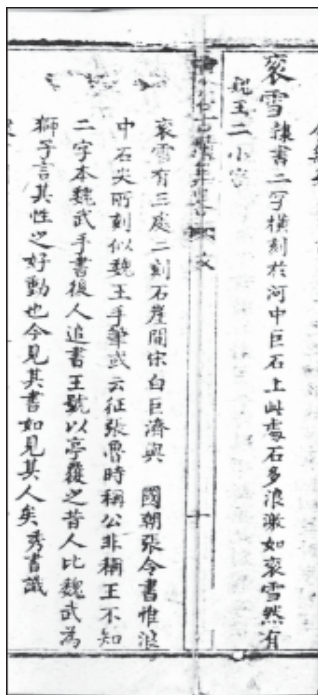 衮雪隸書二字橫刻於河中巨石上此處石多浪激如衮雪然有
魏王二小字
衮雪有三處二刻石崖間宋白巨濟與 國朝張令書惟浪
中石尖所刻似魏王手筆或云征張魯時稱公非稱王不知
二字本魏武手書後人追書王號以亭覆之昔人比魏武為
獅子言其性之好動也今見其書如見其人矣秀書識